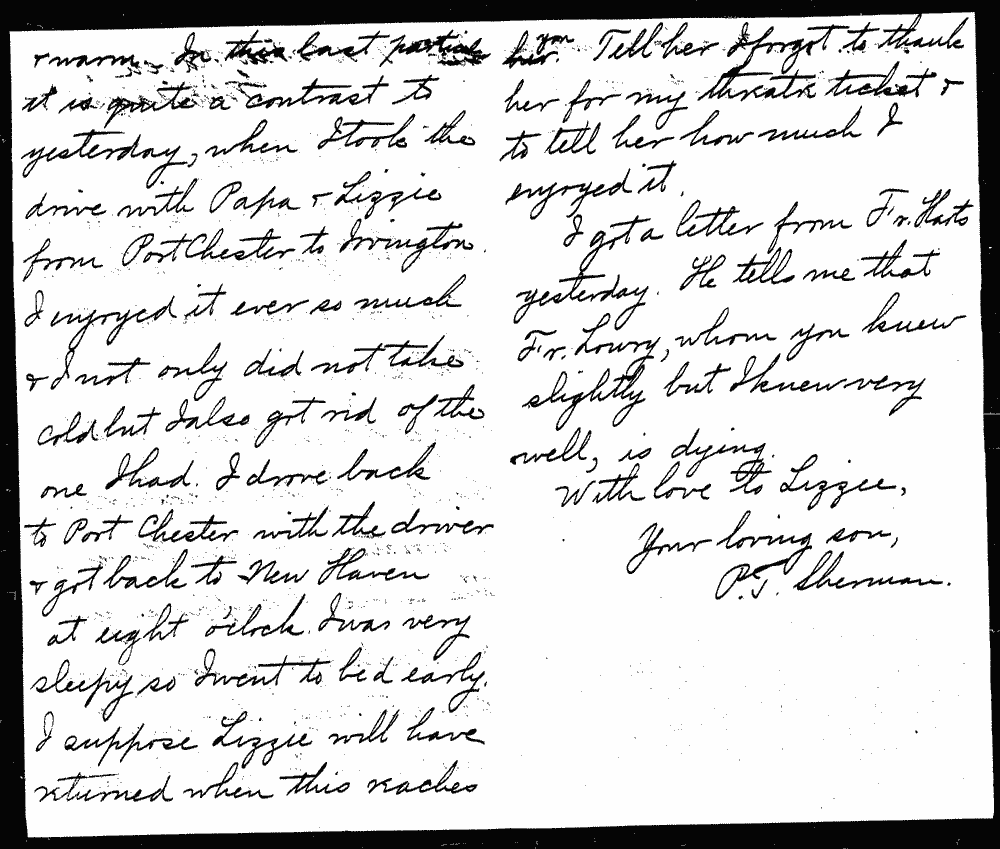 & warm. In this last particular
it is quite a contrast to
yesterday, when I took the
drive with Papa & Lizzie
from Port Chester to Irvington.
I enjoyed it ever so much
& I not only did not take
cold but I also got rid of the
one I had. I drove back
to Port Chester with the driver
& got back to New Haven
at eight o'clock. I was very
sleepy so I went to bed early.
I suppose Lizzie will have
returned when this reaches
her. you Tell her I forgot to thank
her for my theatre ticket &
to tell her how much I
enjoyed it.
I got a letter from Fr.
yesterday. He tells me that
Fr. Lowry, whom you knew
slightly but I knew very
well, is dying.
With love to Lizzie,
Your loving son,
P.T. Sherman.